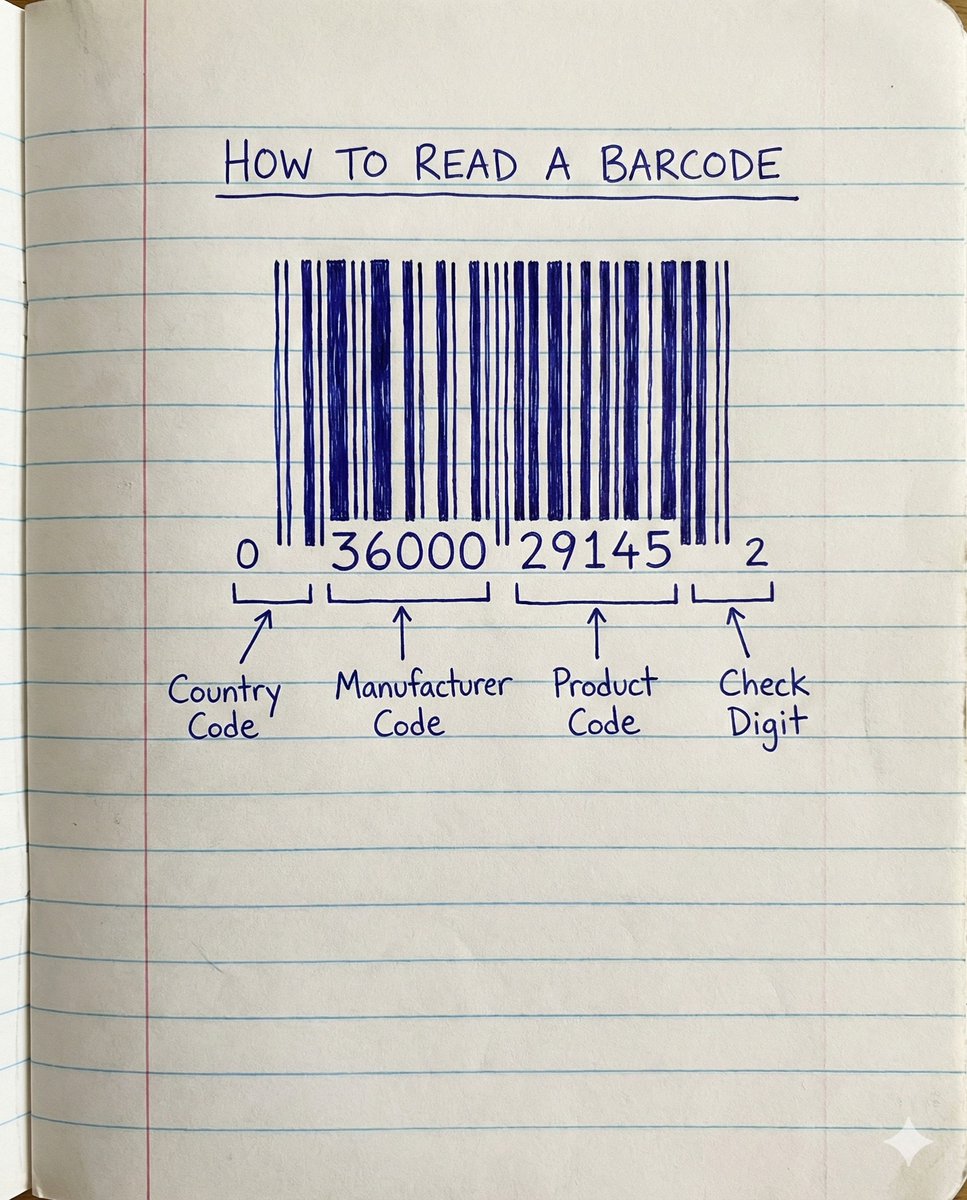 HOW TO READ A BARCODE
0 36000 29145 2
Country Manufacturer Product Check
Code Code Code Digit